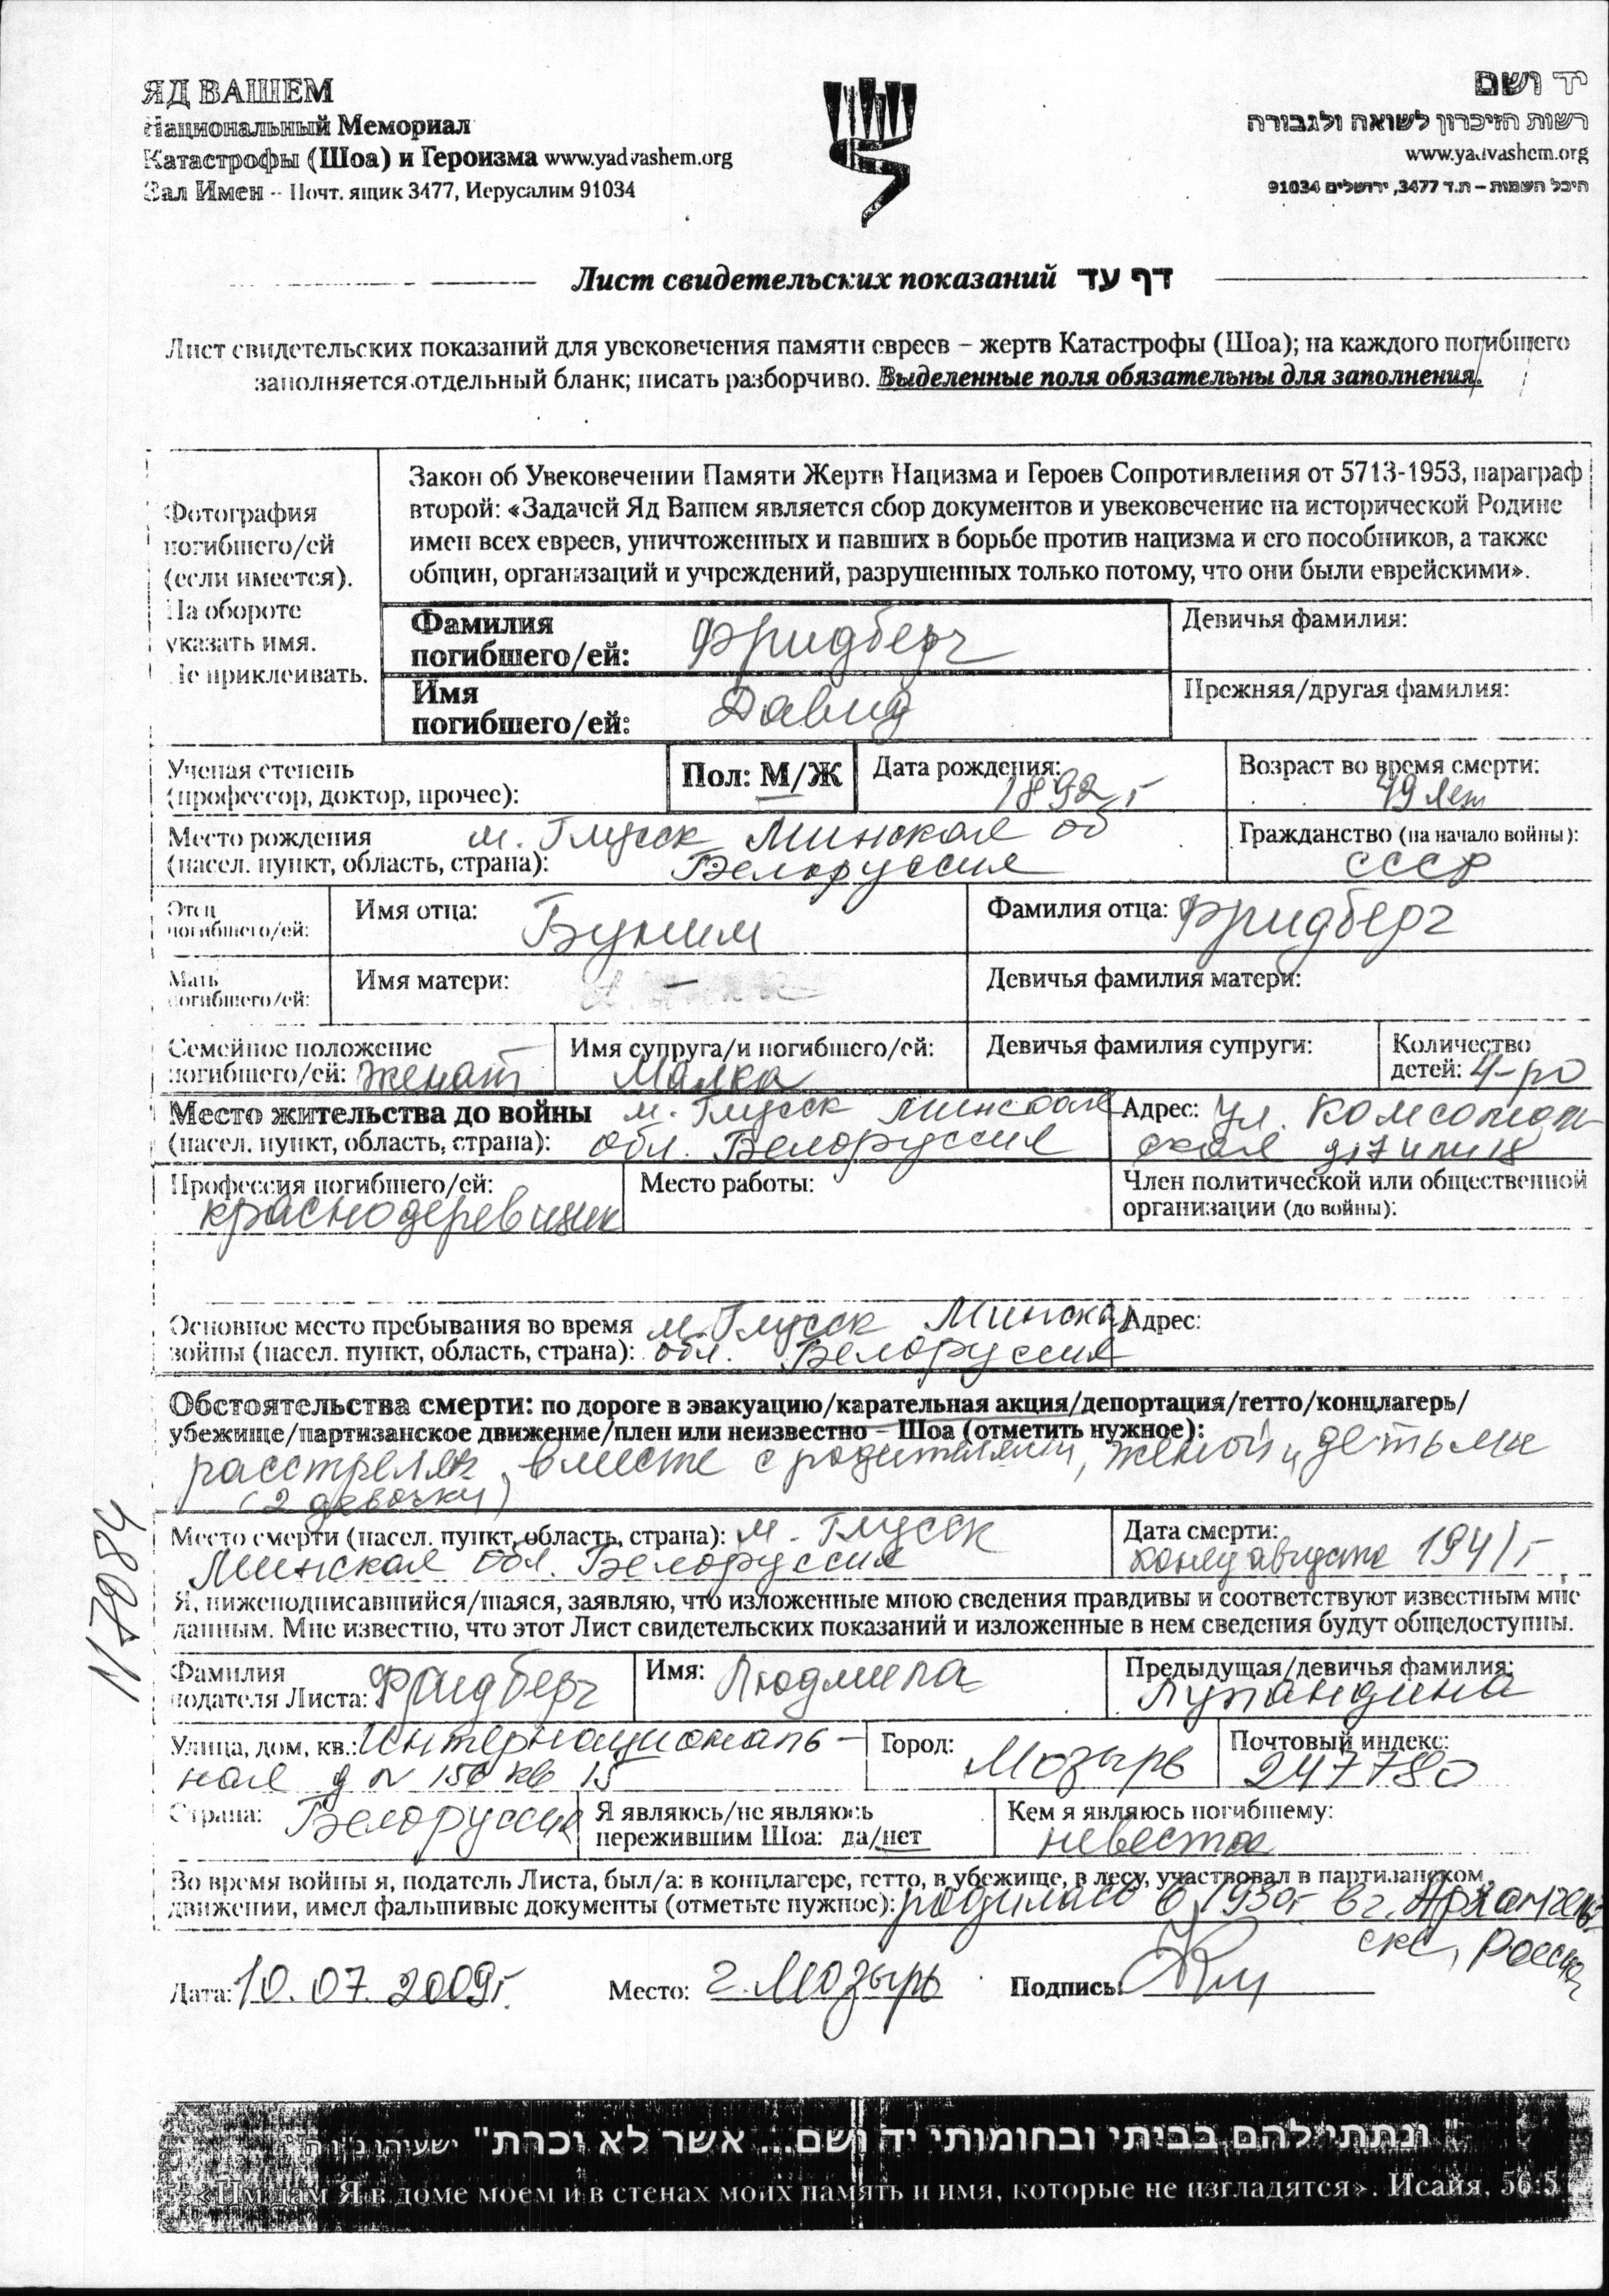 ЯД ВАШЕМ
Национальный Мемориал
Катастрофы (Шоа) и Героизма www.yadvashem.org
Зал Имен - Почт. ящик 3477, Иерусалим 91034
יד ושם
רשות הזיכרון לשואה ולגבורה
www.yadvashem.org
היכל השמות – ת.ד 3477, ירושלים 91034
Лист свидетельских показаний דף עד
Лист свидетельских показаний для увековечения памяти евреев – жертв Катастрофы (Шоа); на каждого погибшего
заполняется отдельный бланк; писать разборчиво. Выделенные поля обязательны для заполнения.
Фотография
погибшего/ей
(если имеется).
На обороте
указать имя.
Не приклеивать.
Закон об Увековечении Памяти Жертв Нацизма и Героев Сопротивления от 5713-1953, параграф
второй: «Задачей Яд Вашем является сбор документов и увековечение на исторической Родине
имен всех евреев, уничтоженных и павших в борьбе против нацизма и его пособников, а также
общин, организаций и учреждений, разрушенных только потому, что они были еврейскими».
Фамилия
погибшего/ей: Фридберг
Девичья фамилия:
Имя
погибшего/ей: Давид
Прежняя/другая фамилия:
Ученая степень
(профессор, доктор, прочее):
Пол: М/Ж
Дата рождения:
1892 г
Возраст во время смерти:
49 лет
Место рождения м. Глусск Минская об
(насел. пункт, область, страна): Белоруссия
Гражданство (на начало войны):
СССР
Отец
погибшего/ей:
Имя отца: Буним
Фамилия отца: Фридберг
Мать
погибшего/ей:
Имя матери: –
Девичья фамилия матери:
Семейное положение
погибшего/ей: женат
Имя супруга/и погибшего/ей:
Малка
Девичья фамилия супруги:
Количество
детей: 4-ро
Место жительства до войны м. Глусск Минская
(насел. пункт, область, страна): обл. Белоруссия
Адрес: ул. Комсомоль
ская д 17 или 18
Профессия погибшего/ей:
краснодеревщик
Место работы:
Член политической или общественной
организации (до войны):
Основное место пребывания во время м. Глусск Минская
войны (насел. пункт, область, страна): обл. Белоруссия
Адрес:
Обстоятельства смерти: по дороге в эвакуацию/карательная акция/депортация/гетто/концлагерь/
убежище/партизанское движение/плен или неизвестно – Шоа (отметить нужное):
расстрелян вместе с родителями, женой и детьми
(2 девочки)
Место смерти (насел. пункт, область, страна): м. Глусск
Минская обл. Белоруссия
Дата смерти:
конец августа 1941 г
Я, нижеподписавшийся/шаяся, заявляю, что изложенные мною сведения правдивы и соответствуют известным мне
данным. Мне известно, что этот Лист свидетельских показаний и изложенные в нем сведения будут общедоступны.
Фамилия
подателя Листа: Фридберг
Имя: Людмила
Предыдущая/девичья фамилия:
Лупандина
Улица, дом, кв.: Интернациональ-
ная д N 156 кв 15
Город: Мозырь
Почтовый индекс:
247780
Страна: Белоруссия
Я являюсь/не являюсь
пережившим Шоа: да/нет
Кем я являюсь погибшему:
невестка
Во время войны я, податель Листа, был/а: в концлагере, гетто, в убежище, в лесу, участвовал в партизанском
движении, имел фальшивые документы (отметьте нужное): родилась в 1930г. в г. Архангель
ске, Россия
Дата: 10. 07. 2009г.
Место: г. Мозырь
Подпись:
117084
"ונתתי להם בביתי ובחומותי יד ושם... אשר לא יכרת" ישעיהו נ"ו ה'
«Им дам Я в доме моем и в стенах моих память и имя, которые не изгладятся». Исайя, 56:5